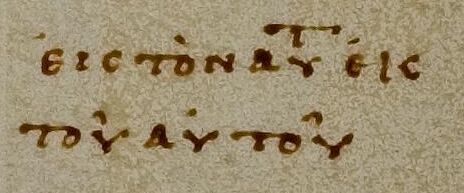 εἰς τὸν αυτ εἰς
τοῦ αὐτοῦ